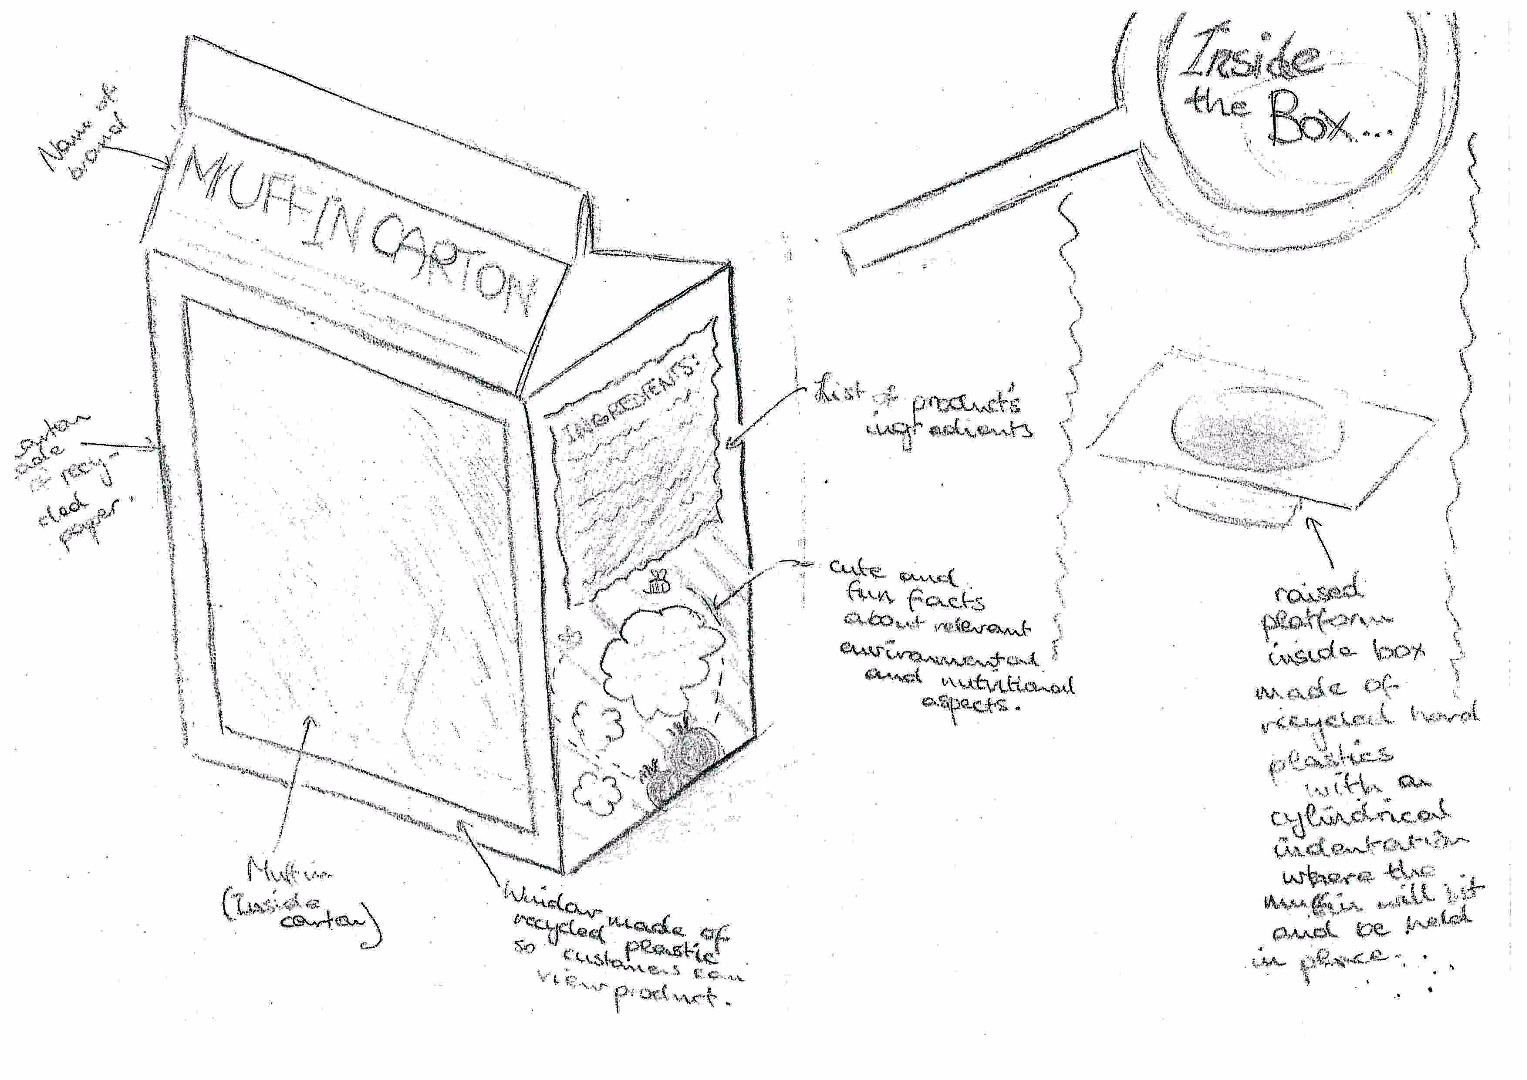 Name of
brand
MUFFIN CARTON
Inside
the Box...
INGREDIENTS:
List of product's
ingredients
carton
made
of recy-
cled
paper.
cute and
fun facts
about relevant
environmental
and nutritional
aspects.
raised
platform
inside box
made of
recycled hard
plastics
with an
cylindrical
indentation
where the
muffin will sit
and be held
in place...
Muffin
(Inside
carton)
Window made of
recycled plastic
so customers can
view product.